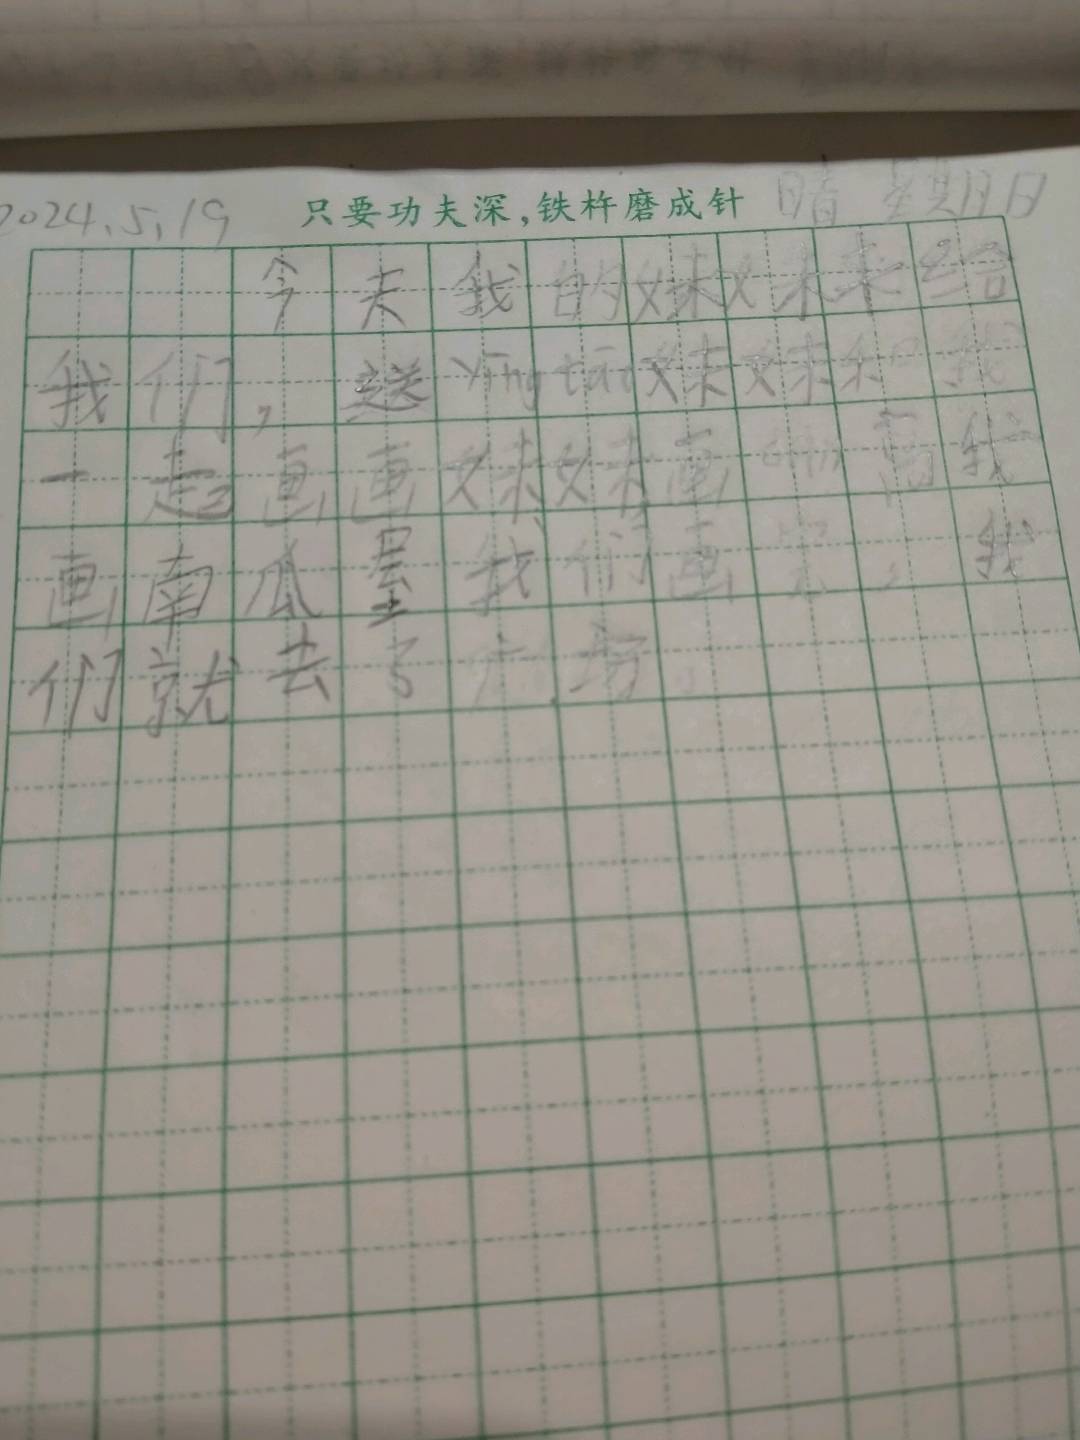 2024.5.19 只要功夫深,铁杵磨成针 晴 星期日
今天我的妹妹来给
我们,送yīng táo妹妹和我
一起画画妹妹画 我
画南瓜 我们画完,我
们就去了广场。